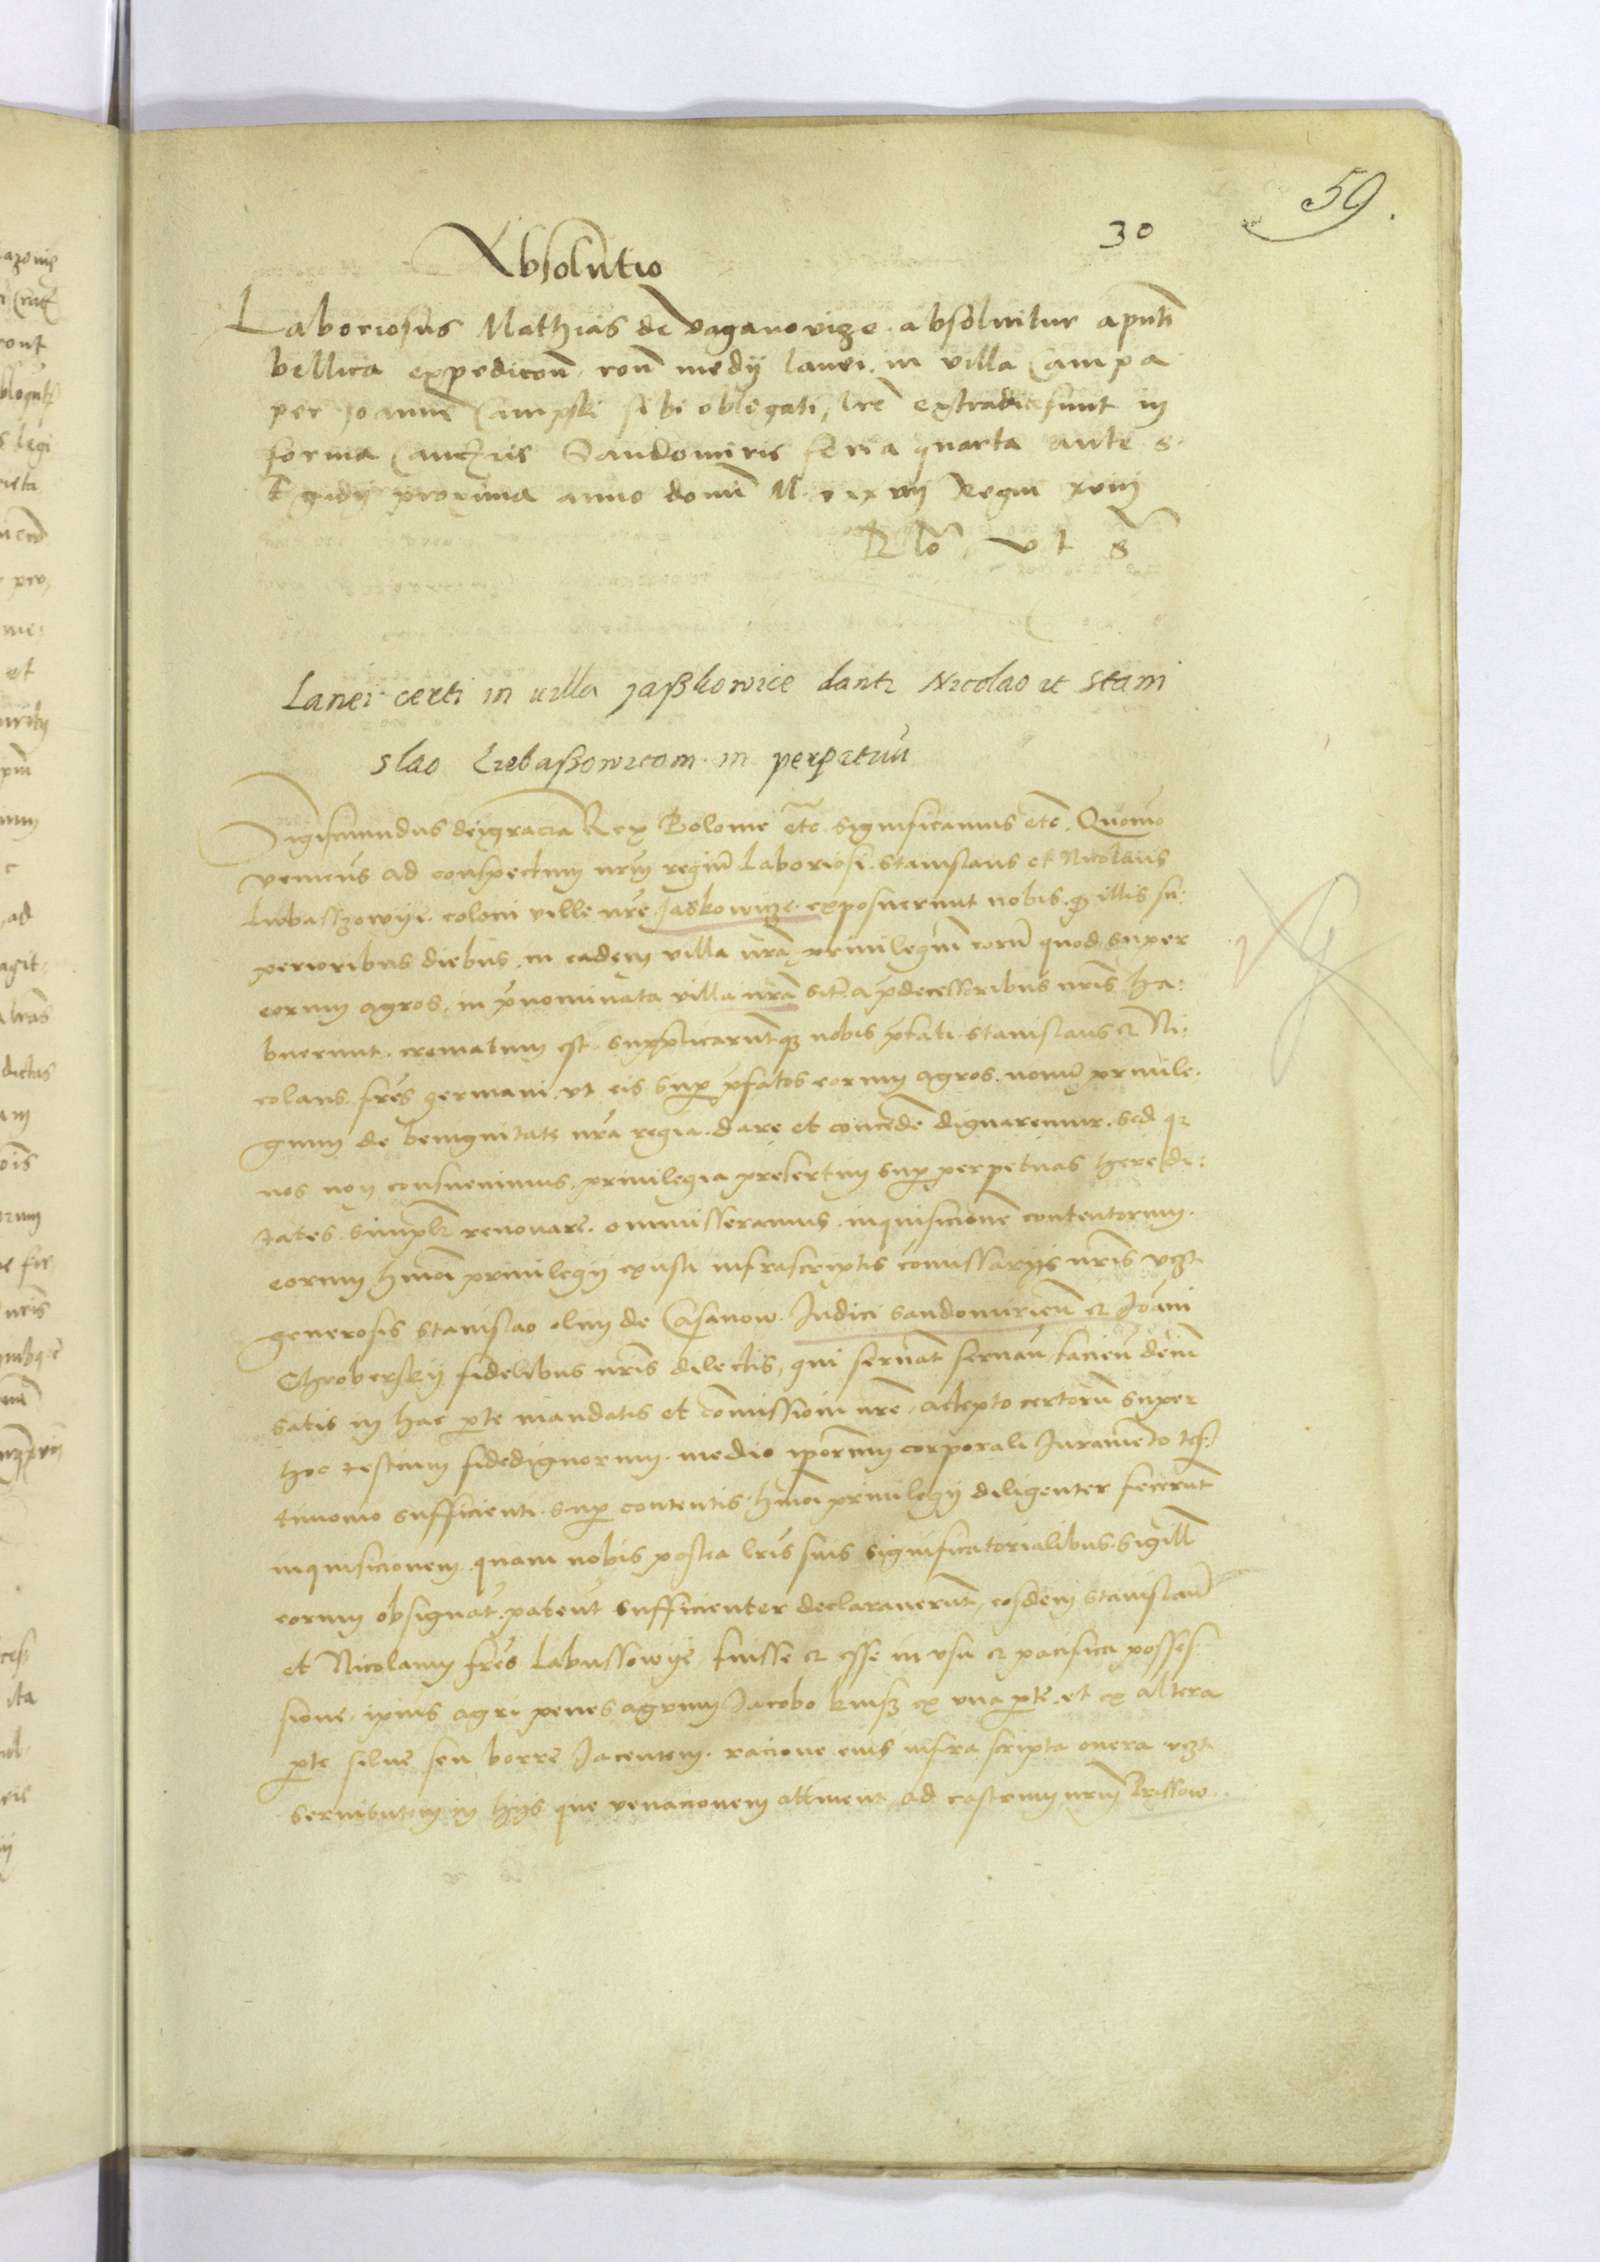 59.
30
Absolutio
Laboriosus Mathias de Vaganovize absolvitur a pnti
bellica expedicoe rone medij lanei in villa Campa
per Joanne Campski sibi obligati, lre extradite sunt in
forma Cancris Sandomiris feria quarta ante S.
Egidij proxima anno domi M. v xx iiij Regni xviij
Rlo ut S
Lanei certi in villa jaßkowice dantr Nicolao et Stani
slao Lubaßowicom in perpetuu
Sigismundus dei gracia Rex Polonie etc significamus etc. Quomo
venietes ad conspectum nrum regiu Laboriosi Stanislaus et Nicolaus
Lubaszowije coloni ville nre Jaskowicze exposuerunt nobis q illis su:
perioribus diebus in eadem villa nra privilegiu eoru quod super
eorum agros in prenominata villa nra sit a pdecessoribus nris ha:
buerunt crematum est. Supplicaruntq nobis pfati Stanislaus et Ni:
colaus fres germani ut eis sup pfatos eorum agros novu privile:
gium de benignitate nra regia dare et concede dignaremur. Sed q
nos non consuevimus privilegia presertim sup perpetuas heredi:
tates simplr renovare commisseramus inquisicione contentorum
eorum hmoi privilegij exusti infrascriptis comissarijs nris vz
generosis Stanislao olim de Czasanow Judici Sandomirien et Joanni
Chroberskij fidelibus nris dilectis, qui servat servan facien deni
satis in hac pte mandatis et comissioni nre, adepto certoru super
hoc testium fidedignorum medio ipsorum corporali Juramento tes
timonio sufficienti sup contentis hmoi privilegij diligenter fecerut
inquisicionem quam nobis postea lris suis significatorialibus sigill
eorum obsignat patent sufficienter declaraverut, eosdem Stanislau
et Nicolaum fres Labussowije fuisse et esse in usu et pacifica posses
sione ipius agri penes agrum Jacobo kmiss ex una pte et ex altera
pte silve seu borre Jacentem racione eius infra scripta onera vz
servitutem in hijs que venacionem attinent ad castrum nrum Ilssow